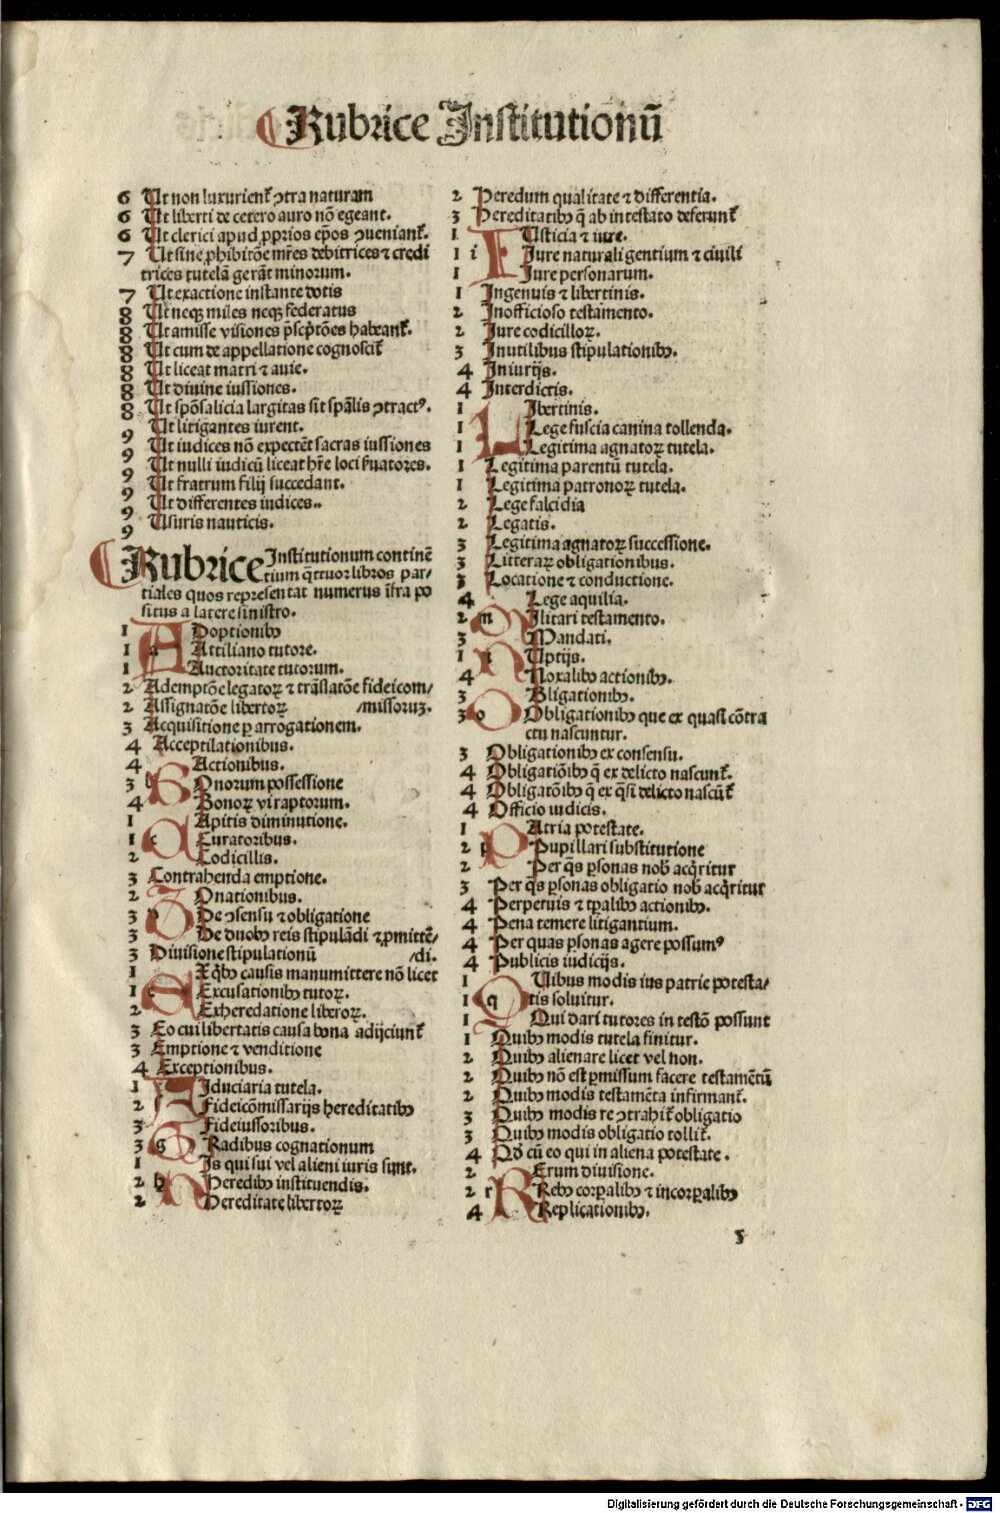 Rubrice Institutionū
6 Ut non luxurient᷑ ꝯtra naturam
6 Ut liberti de cetero auro nō egeant.
6 Ut clerici apud ꝓprios ep̄os ꝯueniant᷑.
7 Ut sine ꝓhibitōe mr̄es debitrices ⁊ credi
trices tutelā gerāt minorum.
7 Ut exactione instante dotis
8 Ut neqꝫ miles neqꝫ federatus
8 Ut amisse visiones p̄scp̄tōes habeant᷑.
8 Ut cum de appellatione cognoscit᷑
8 Ut liceat matri ⁊ auie.
8 Ut diuine iussiones.
8 Ut spōsalicia largitas sit spālis ꝯtractꝰ.
9 Ut litigantes iurent.
9 Ut iudices nō expectēt sacras iussiones
9 Ut nulli iudicū liceat hr̄e loci ẜuatores.
9 Ut fratrum filij succedant.
9 Ut differentes iudices..
9 Usuris nauticis.
Rubrice Institutionum continē
tium q̄ttuor libros par/
tiales quos representat numerus īfra po
situs a latere sinistro.
1 Adoptionibꝫ
1 a Attiliano tutore.
1 Auctoritate tutorum.
2 Ademptōe legatoꝝ ⁊ trāslatōe fideicom/
2 Assignatōe libertoꝝ /missoruꝫ.
3 Acquisitione ꝑ arrogationem.
4 Acceptilationibus.
4 Actionibus.
3 b Bonorum possessione
4 Bonoꝝ vi raptorum.
1 Capitis diminutione.
1 c Curatoribus.
2 Codicillis.
3 Contrahenda emptione.
2 Donationibus.
3 D De ꝯsensu ⁊ obligatione
3 De duobꝫ reis stipulādi ⁊ ꝓmittē/
3 Diuisione stipulationū /di.
1 Ex qͥbꝫ causis manumittere nō licet
1 e Excusationibꝫ tutoꝝ.
2 Exheredatione liberoꝝ.
3 Eo cui libertatis causa bona adijciunt᷑
3 Emptione ⁊ venditione
4 Exceptionibus.
1 Fiduciaria tutela.
2 f Fideicōmissarijs hereditatibꝫ
3 Fideiussoribus.
3 g Gradibus cognationum
1 Is qui sui vel alieni iuris sunt.
2 h Heredibꝫ instituendis.
2 Hereditate libertoꝝ
2 Heredum qualitate ⁊ differentia.
3 Hereditatibꝫ q̄ ab intestato deferunt᷑
1 Iusticia ⁊ iure.
1 i Iure naturali gentium ⁊ ciuili
1 Iure personarum.
1 Ingenuis ⁊ libertinis.
2 Inofficioso testamento.
2 Iure codicilloꝝ.
3 Inutilibus stipulationibꝫ.
4 Iniurijs.
4 Interdictis.
1 Libertinis.
1 Lege fuscia canina tollenda.
1 Legitima agnatoꝝ tutela.
1 Legitima parentū tutela.
1 Legitima patronoꝝ tutela.
2 Lege falcidia
2 Legatis.
3 Legitima agnatoꝝ successione.
3 Litteraꝝ obligationibus.
3 Locatione ⁊ conductione.
4 Lege aquilia.
2 m Militari testamento.
3 Mandati.
1 n Nuptijs.
4 Noxalibꝫ actionibꝫ.
3 Obligationibꝫ.
3 o Obligationibꝫ que ex quasi cōtra
ctu nascuntur.
3 Obligationibꝫ ex consensu.
4 Obligatiōibꝫ q̄ ex delicto nascunt᷑.
4 Obligatōibꝫ q̄ ex qͣsi delicto nascūt᷑
4 Officio iudicis.
1 Patria potestate.
2 p Pupillari substitutione
2 Per qͣs ꝑsonas nob̄ acqͥritur
3 Per qͣs ꝑsonas obligatio nob̄ acqͥritur
4 Perpetuis ⁊ tꝑalibꝫ actionibꝫ.
4 Pena temere litigantium.
4 Per quas ꝑsonas agere possumꝰ
4 Publicis iudicijs.
1 Quibus modis ius patrie potesta/
1 q tis soluitur.
1 Qui dari tutores in testō possunt
1 Quibꝫ modis tutela finitur.
2 Quibꝫ alienare licet vel non.
2 Quibꝫ nō est ꝑmissum facere testamētū
2 Quibꝫ modis testamēta infirmant᷑.
3 Quibꝫ modis re ꝯtrahit᷑ obligatio
3 Quibꝫ modis obligatio tollit᷑.
4 Qd̄ cū eo qui in aliena potestate.
2 Rerum diuisione.
2 r Rebꝫ corꝑalibꝫ ⁊ incorꝑalibꝫ
4 Replicationibꝫ.
5
Digitalisierung gefördert durch die Deutsche Forschungsgemeinschaft - DFG